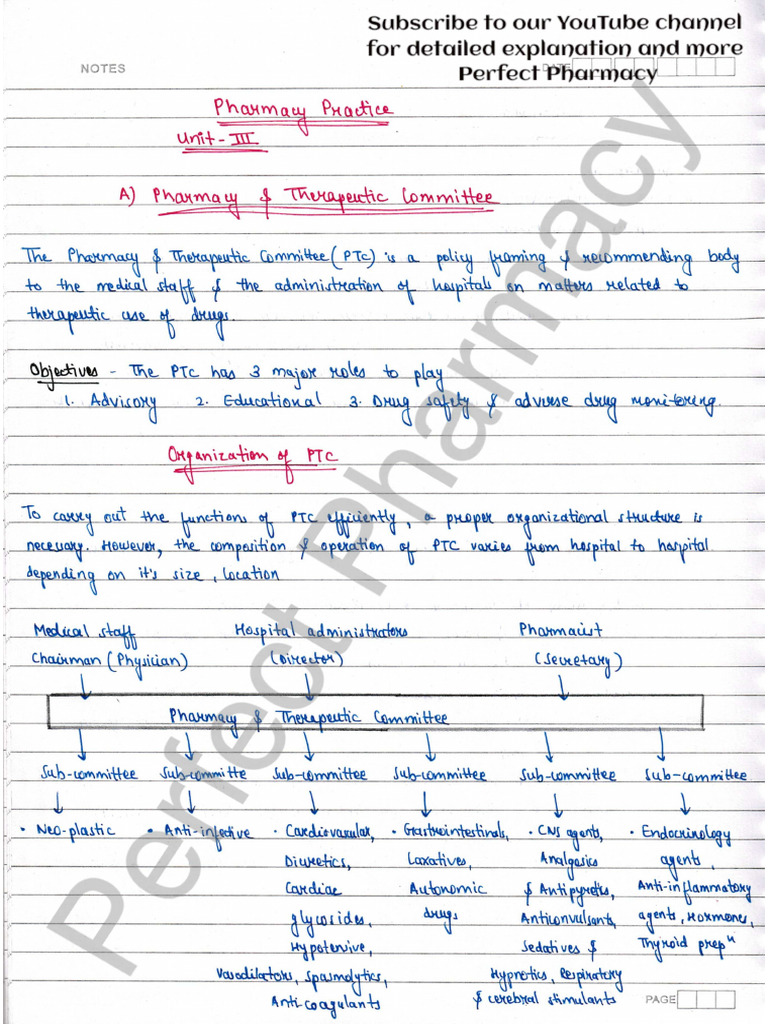 Subscribe to our YouTube channel
for detailed explanation and more
Perfect Pharmacy
NOTES
DATE
Pharmacy Practice
Unit - III
A) Pharmacy & Therapeutic Committee
The Pharmacy & Therapeutic Committee (PTC) is a policy framing & recommending body
to the medical staff & the administration of hospitals on matters related to
therapeutic use of drugs.
Objectives - The PTC has 3 major roles to play
1. Advisory 2. Educational 3. Drug safety & adverse drug monitoring.
Organization of PTC
To carry out the functions of PTC efficiently, a proper organizational structure is
necessary. However, the composition & operation of PTC varies from hospital to hospital
depending on it's size, location
Medical staff Hospital administrators Pharmacist
Chairman (Physician) (Director) (Secretary)
Pharmacy & Therapeutic Committee
Sub-committee Sub-committe Sub-committee Sub-committee Sub-committee Sub-committee
• Neo-plastic • Anti-infective • Cardiovascular, • Gastrointestinals, • CNS agents, • Endocrinology
Diuretics, Laxatives, Analgesics agents,
Cardiac Autonomic & Antipyretics, Anti-inflammatory
glycosides, drugs Anticonvulsants, agents, Hormones,
Hypotensive, Sedatives & Thyroid prepⁿ
Vasodilators, Spasmolytics, Hypnotics, Respiratory
Anti-coagulants & cerebral stimulants
PAGE
Perfect Pharmacy